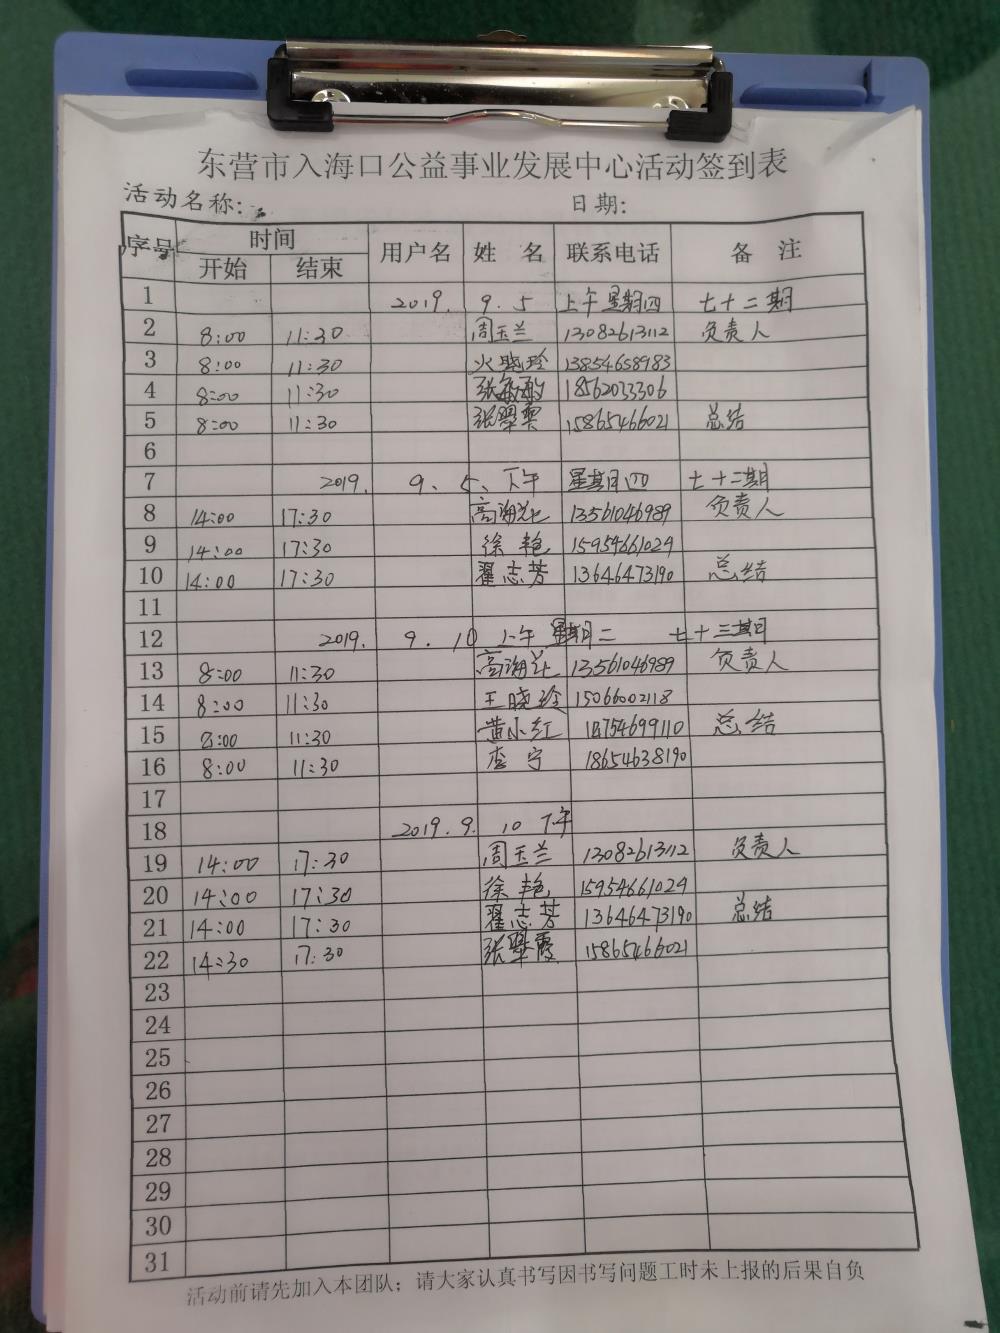 东营市入海口公益事业发展中心活动签到表
活动名称: 日期:
序号 时间 用户名 姓 名 联系电话 备 注
开始 结束
1 2019. 9.5 上午 星期四 七十二期
2 8:00 11:30 周玉兰 13082613112 负责人
3 8:00 11:30 晓玲 13854658983
4 8:00 11:30 张敏 18562033306
5 8:00 11:30 张翠霞 15865466021 总结
6
7 2019. 9、5、下午 星期四 七十二期
8 14:00 17:30 高海花 13561046989 负责人
9 14:00 17:30 徐艳 15954661029
10 14:00 17:30 翟志芳 13646473190 总结
11
12 2019. 9.10 上午 星期二 七十三期
13 8:00 11:30 高海花 13561046989 负责人
14 8:00 11:30 王晓玲 15066002118
15 8:00 11:30 黄小红 14754699110 总结
16 8:00 11:30 李宁 18654638190
17
18 2019.9. 10 下午
19 14:00 17:30 周玉兰 13082613112 负责人
20 14:00 17:30 徐艳 15954661029
21 14:00 17:30 翟志芳 13646473190 总结
22 14:30 17:30 张翠霞 15865466021
23
24
25
26
27
28
29
30
31
活动前请先加入本团队；请大家认真书写因书写问题工时未上报的后果自负